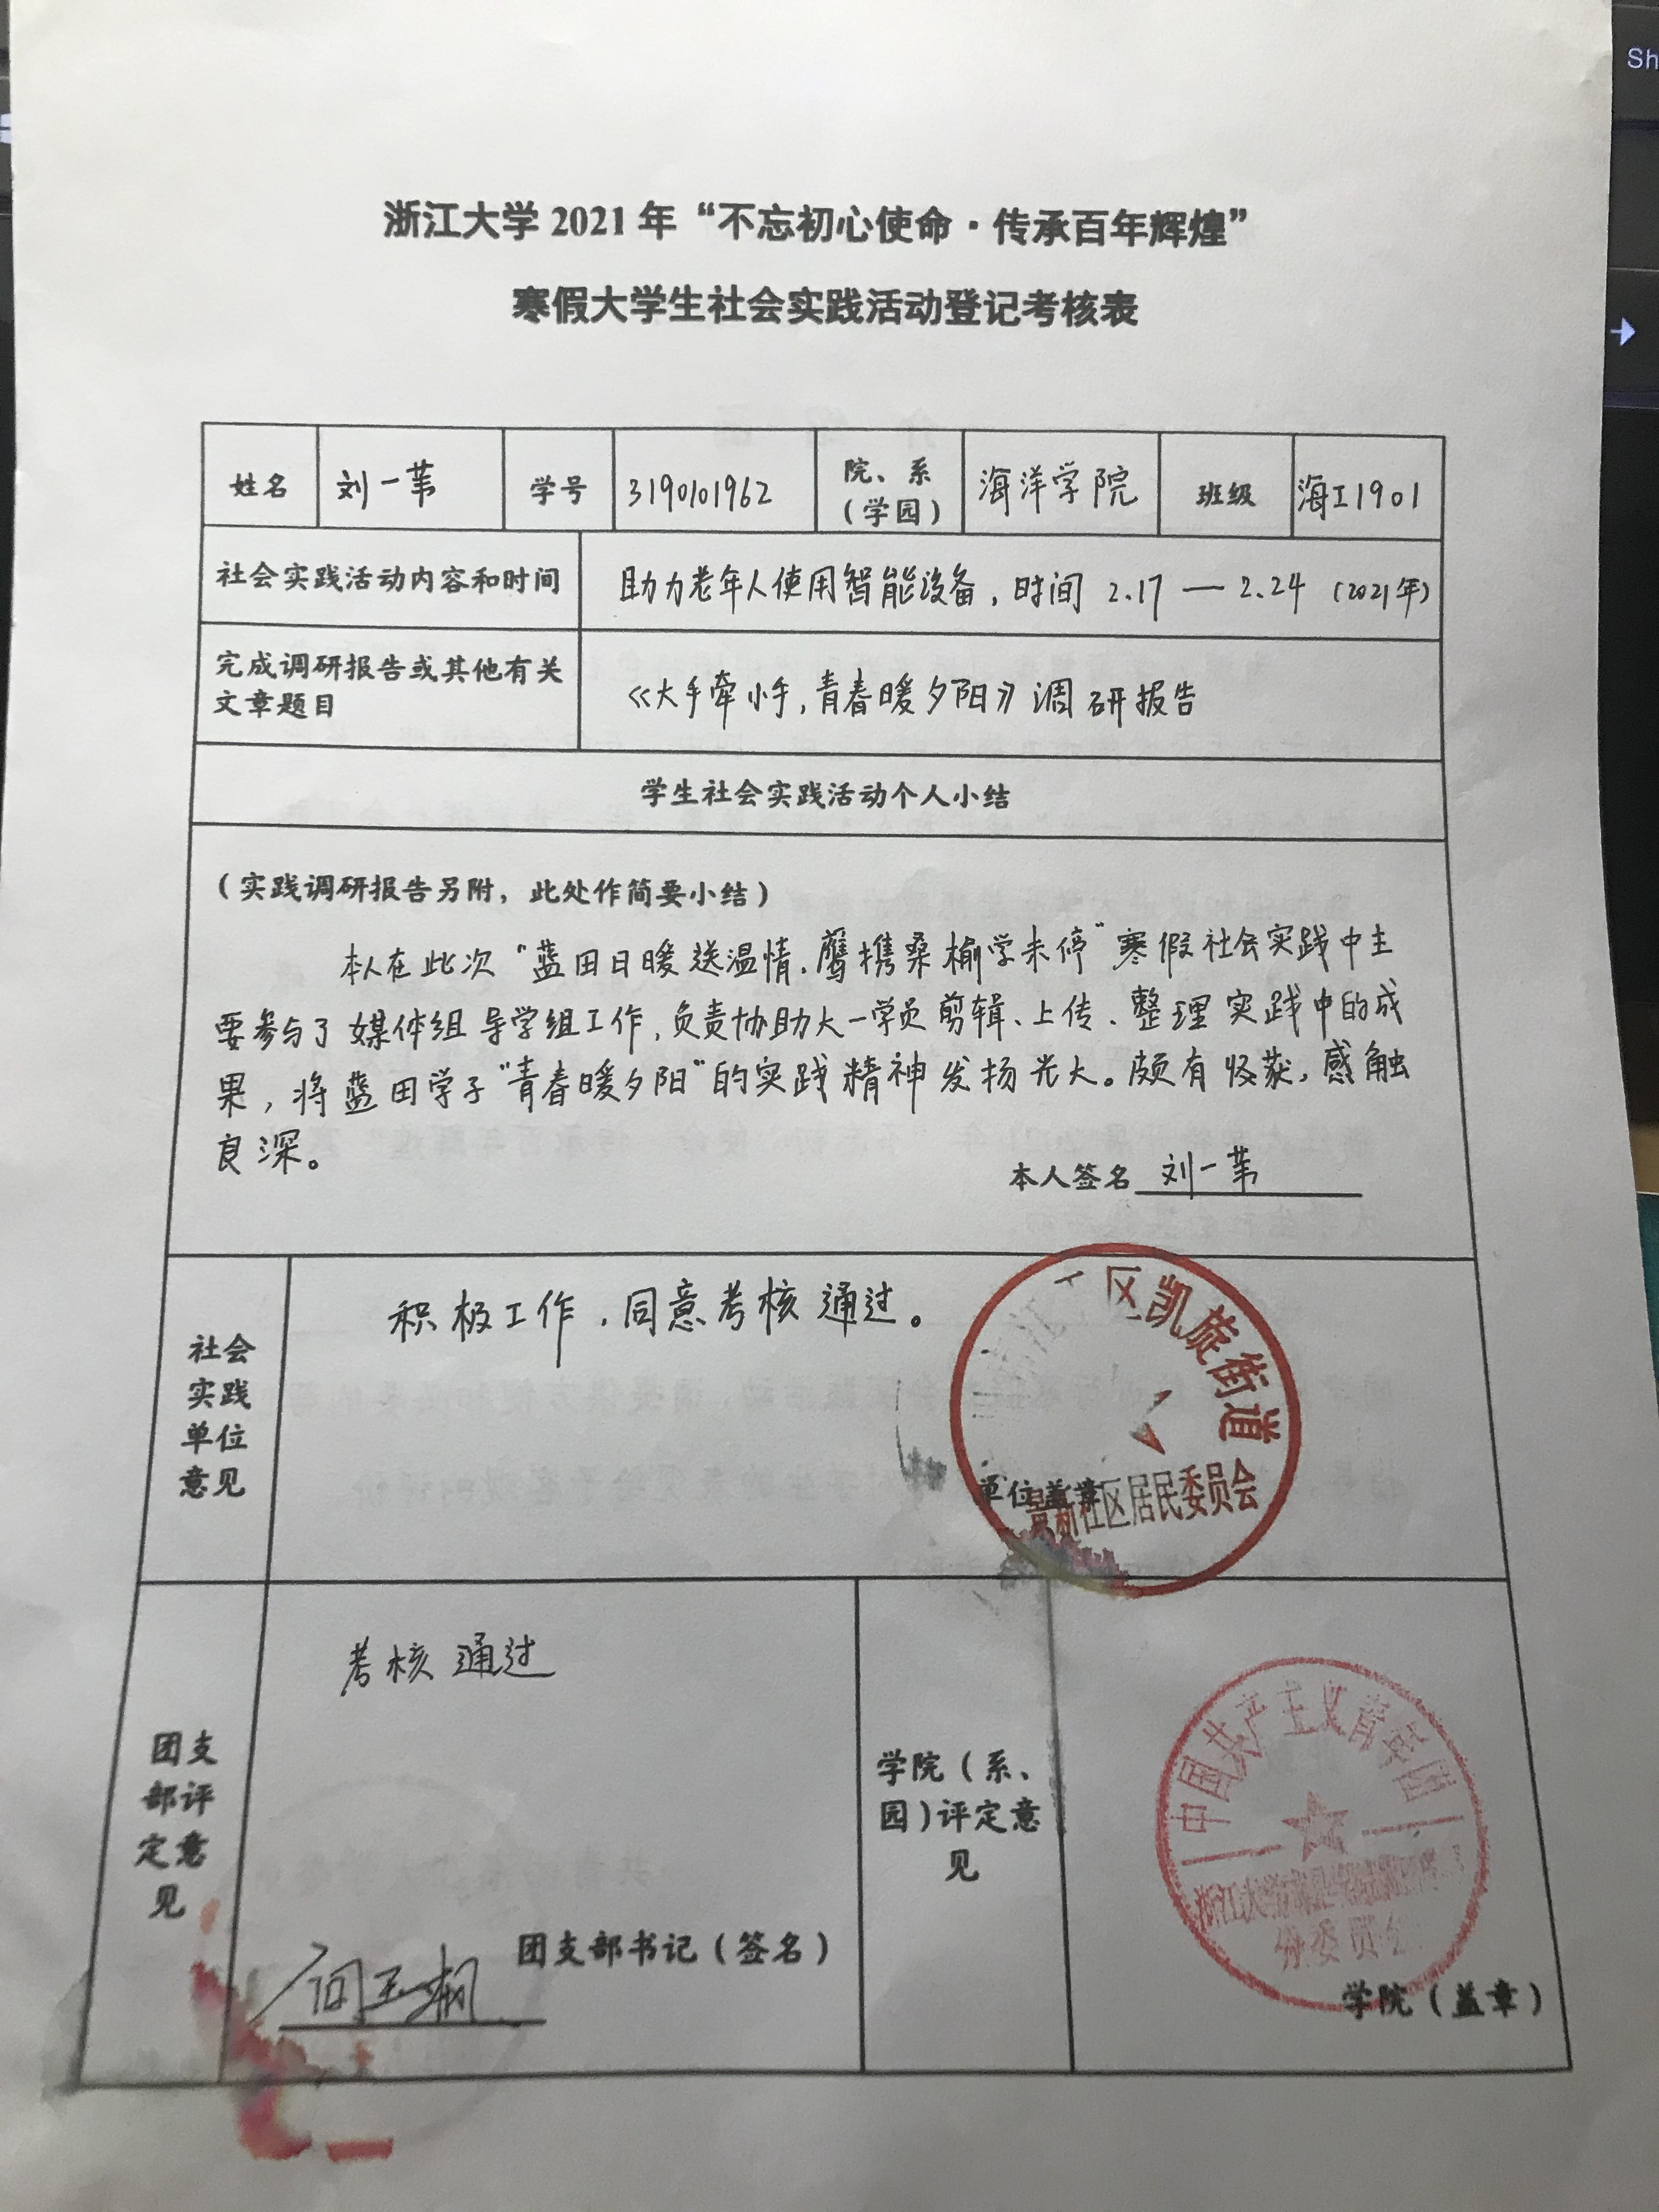 Sh
浙江大学 2021 年“不忘初心使命·传承百年辉煌”
寒假大学生社会实践活动登记考核表
姓名 刘一苇 学号 3190101962 院、系（学园） 海洋学院 班级 海工1901
社会实践活动内容和时间 助力老年人使用智能设备，时间 2.17 — 2.24 (2021年)
完成调研报告或其他有关
文章题目
《大手牵小手，青春暖夕阳》调研报告
学生社会实践活动个人小结
（实践调研报告另附，此处作简要小结）
本人在此次“蓝田日暖送温情，鹰携桑榆学未停”寒假社会实践中主
要参与了媒体组导学组工作，负责协助大一学员剪辑、上传、整理实践中的成
果，将蓝田学子“青春暖夕阳”的实践精神发扬光大。颇有收获，感触
良深。
本人签名 刘一苇
社会
实践
单位
意见
积极工作，同意考核通过。
区凯旋街道
景新社区居民委员会
单位盖章
团支
部评
定意
见
考核通过
团支部书记（签名）
学院（系、
园）评定意
见
中国共产主义青年团
浙江大学
委员会
学院（盖章）